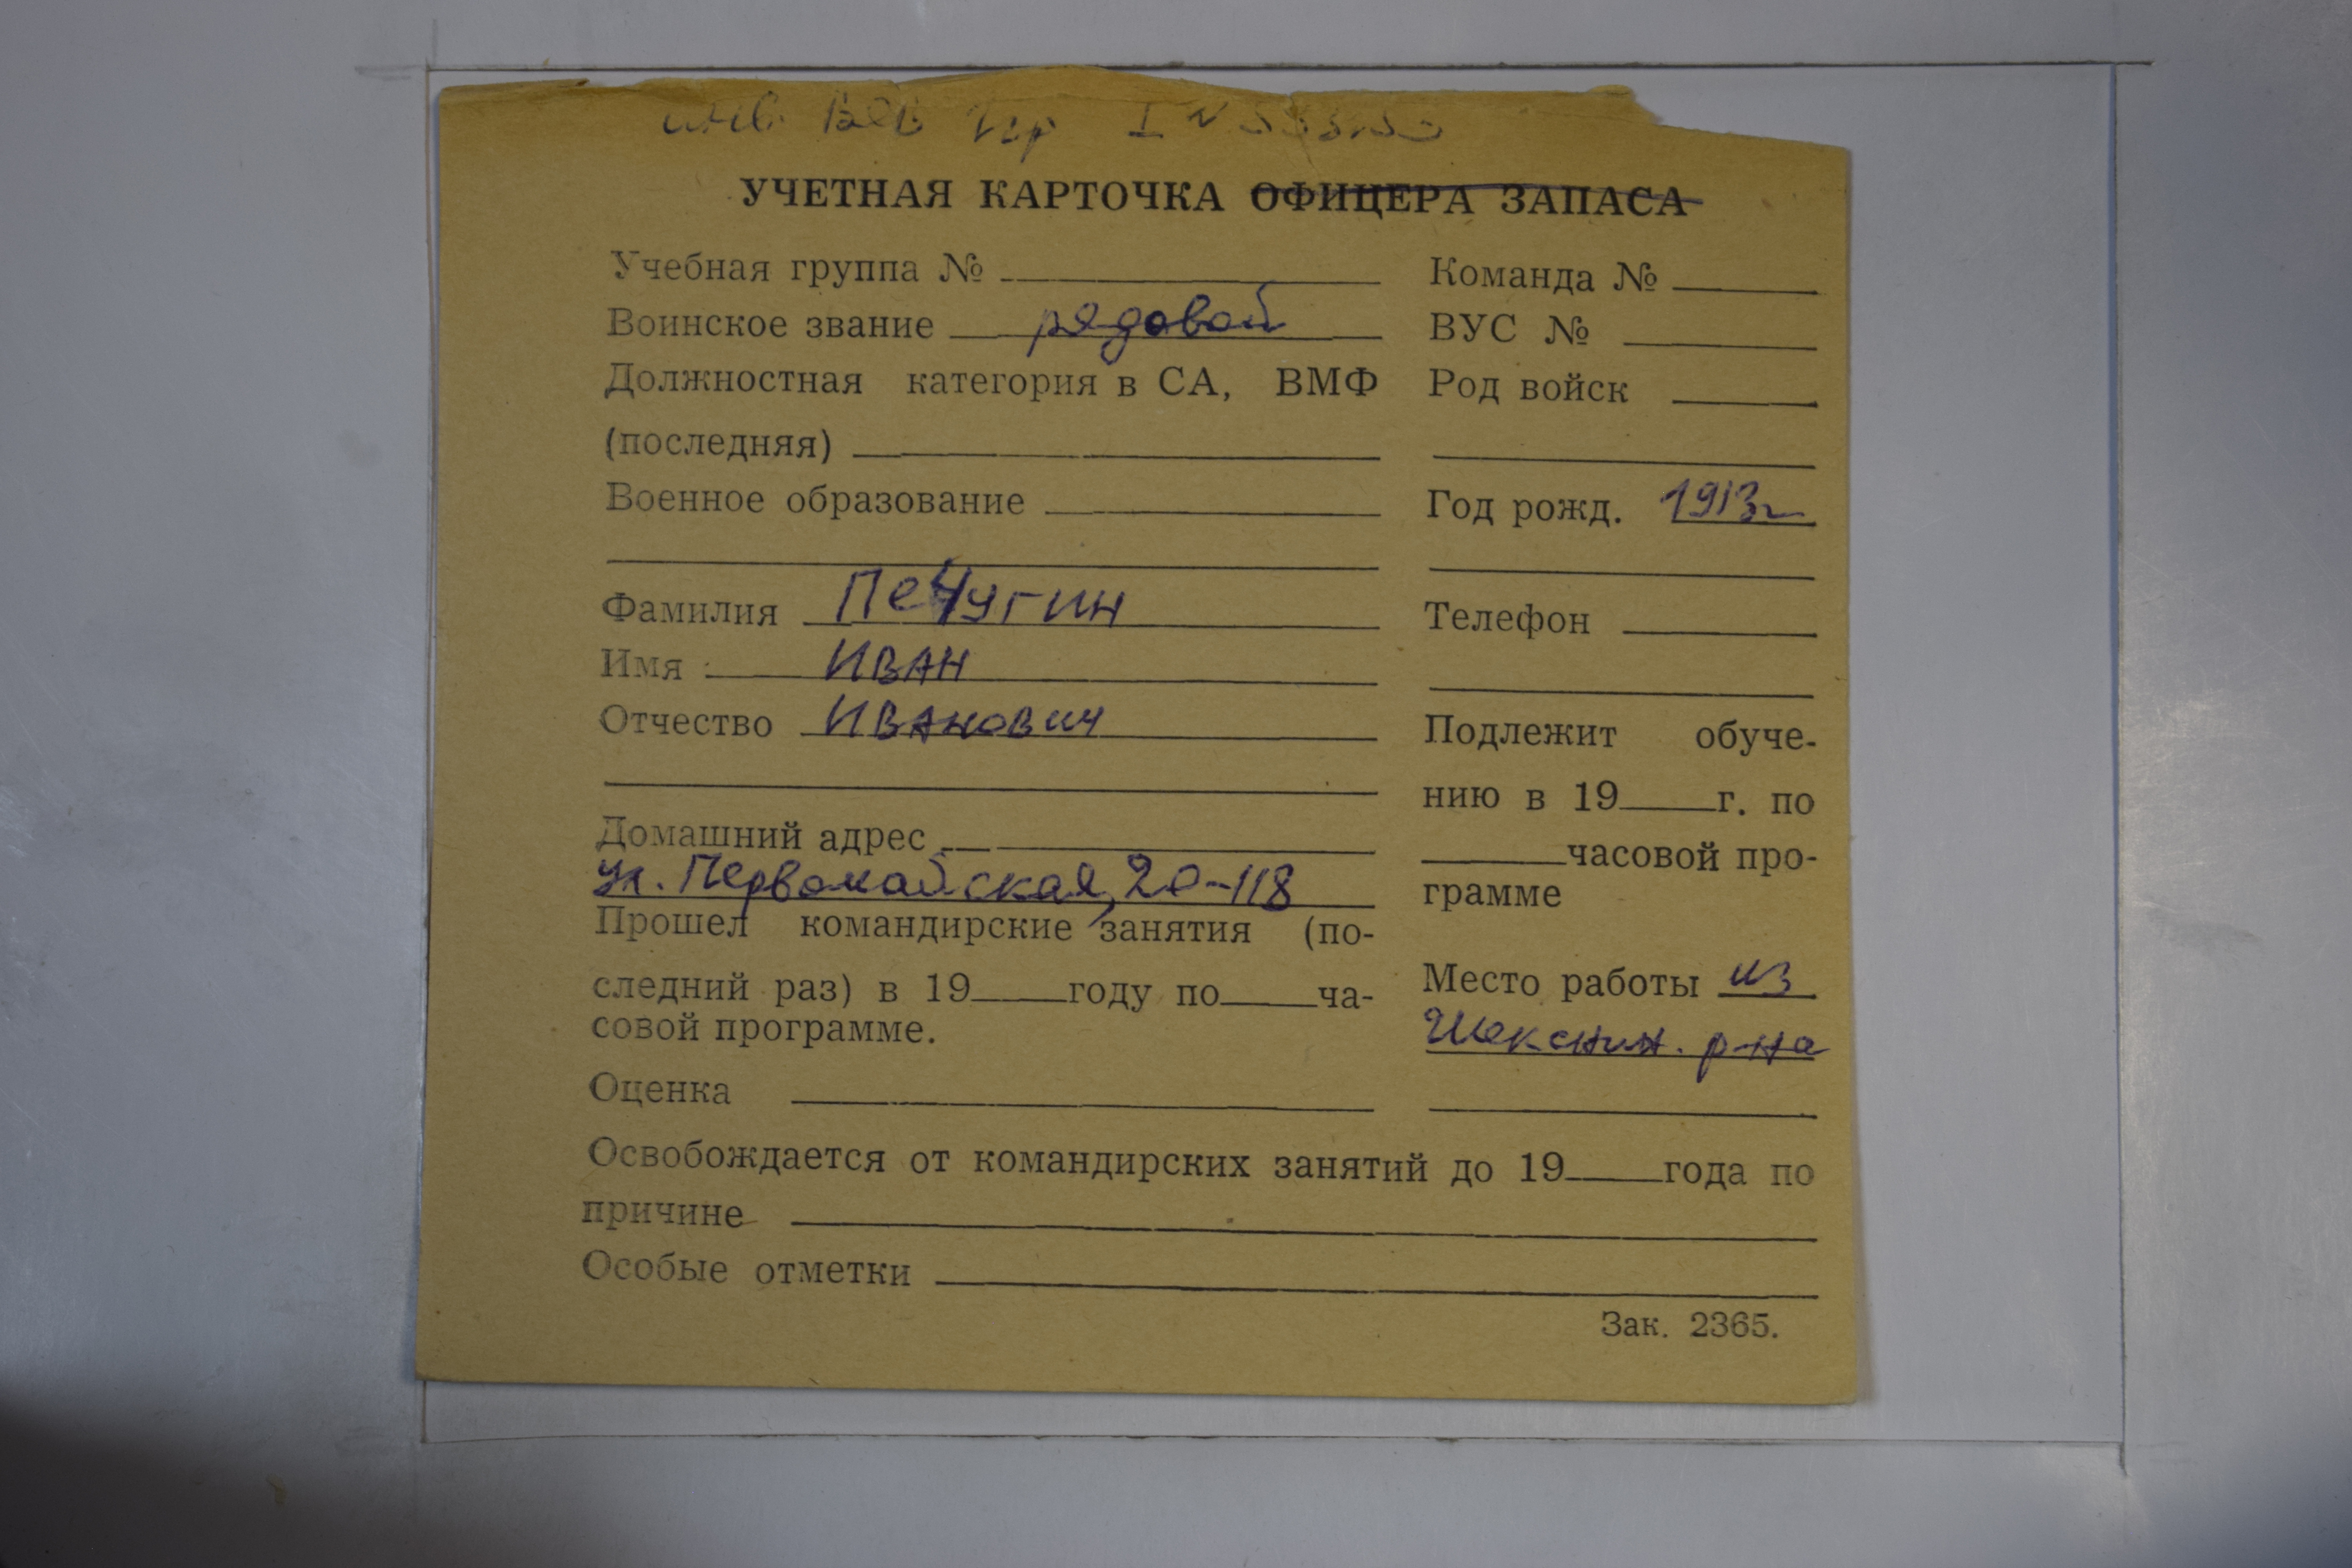 инв. ВОВ IIгр I №
УЧЕТНАЯ КАРТОЧКА ОФИЦЕРА ЗАПАСА
Учебная группа №
Воинское звание рядовой
Должностная категория в СА, ВМФ
(последняя)
Военное образование
Фамилия Печугин
Имя Иван
Отчество Иванович
Домашний адрес
ул. Первомайская, 20-118
Прошел командирские занятия (по-
следний раз) в 19 году по ча-
совой программе.
Оценка
Команда №
ВУС №
Род войск
Год рожд. 1913г
Телефон
Подлежит обуче-
нию в 19 г. по
часовой про-
грамме
Место работы из
Шекснин. р-на
Освобождается от командирских занятий до 19 года по
причине
Особые отметки
Зак. 2365.